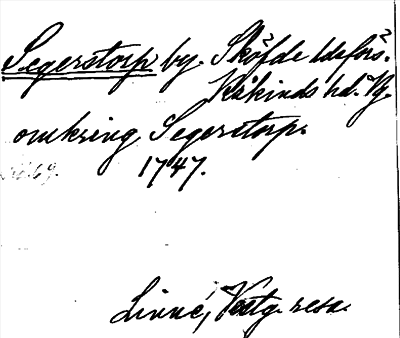 Segerstorp by. Sköfde ldsförs.
Kåkinds hd. Vg.
omkring Segerstorp.
1747.
Linné, Vestg. resa.